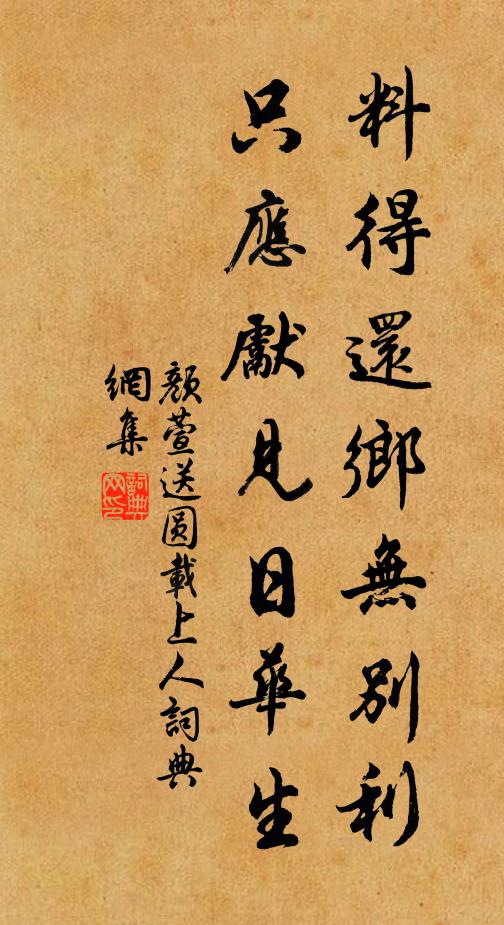 料得還鄉無別利
只應獻見日華生
顏萱送圓載上人詞典
網集
詞典
网印